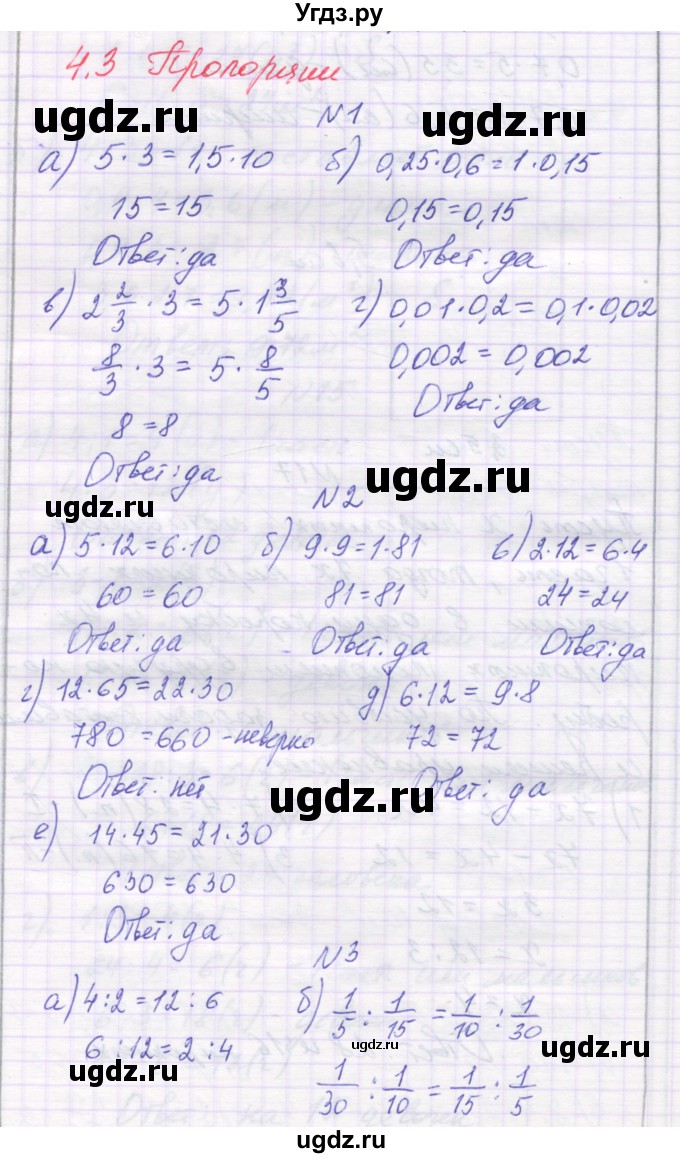 Угдз.ру
4.3 Пропорции
ugdz.ru ugdz.ru
№1
а) 5·3=1,5·10 б) 0,25·0,6=1·0,15
15=15 0,15=0,15
Ответ: да Ответ: да
в) 2 2/3 · 3 = 5 · 1 3/5 г) 0,01·0,2=0,1·0,02
8/3 · 3 = 5 · 8/5 0,002 = 0,002
Ответ: да
8=8
Ответ: да
ugdz.ru ugdz.ru
№2
а) 5·12=6·10 б) 9·9=1·81 в) 2·12=6·4
60=60 81=81 24=24
Ответ: да Ответ: да Ответ: да
г) 12·65=22·30 д) 6·12=9·8
780=660 - неверно 72=72
Ответ: нет Ответ: да
ugdz.ru
е) 14·45=21·30
630=630
Ответ: да
№3
а) 4:2=12:6 б) 1/5 : 1/15 = 1/10 : 1/30
6:12=2:4
ugdz.ru ugdz.ru
1/30 : 1/10 = 1/15 : 1/5
ugdz.ru